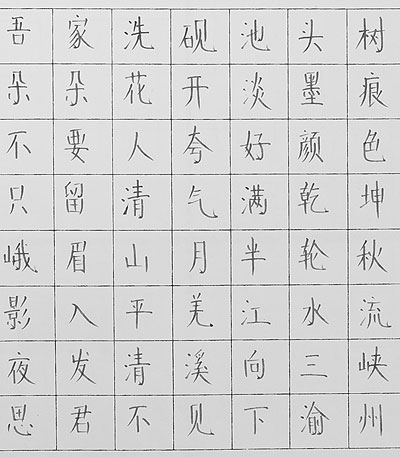 吾家洗砚池头树
朵朵花开淡墨痕
不要人夸好颜色
只留清气满乾坤
峨眉山月半轮秋
影入平羌江水流
夜发清溪向三峡
思君不见下渝州